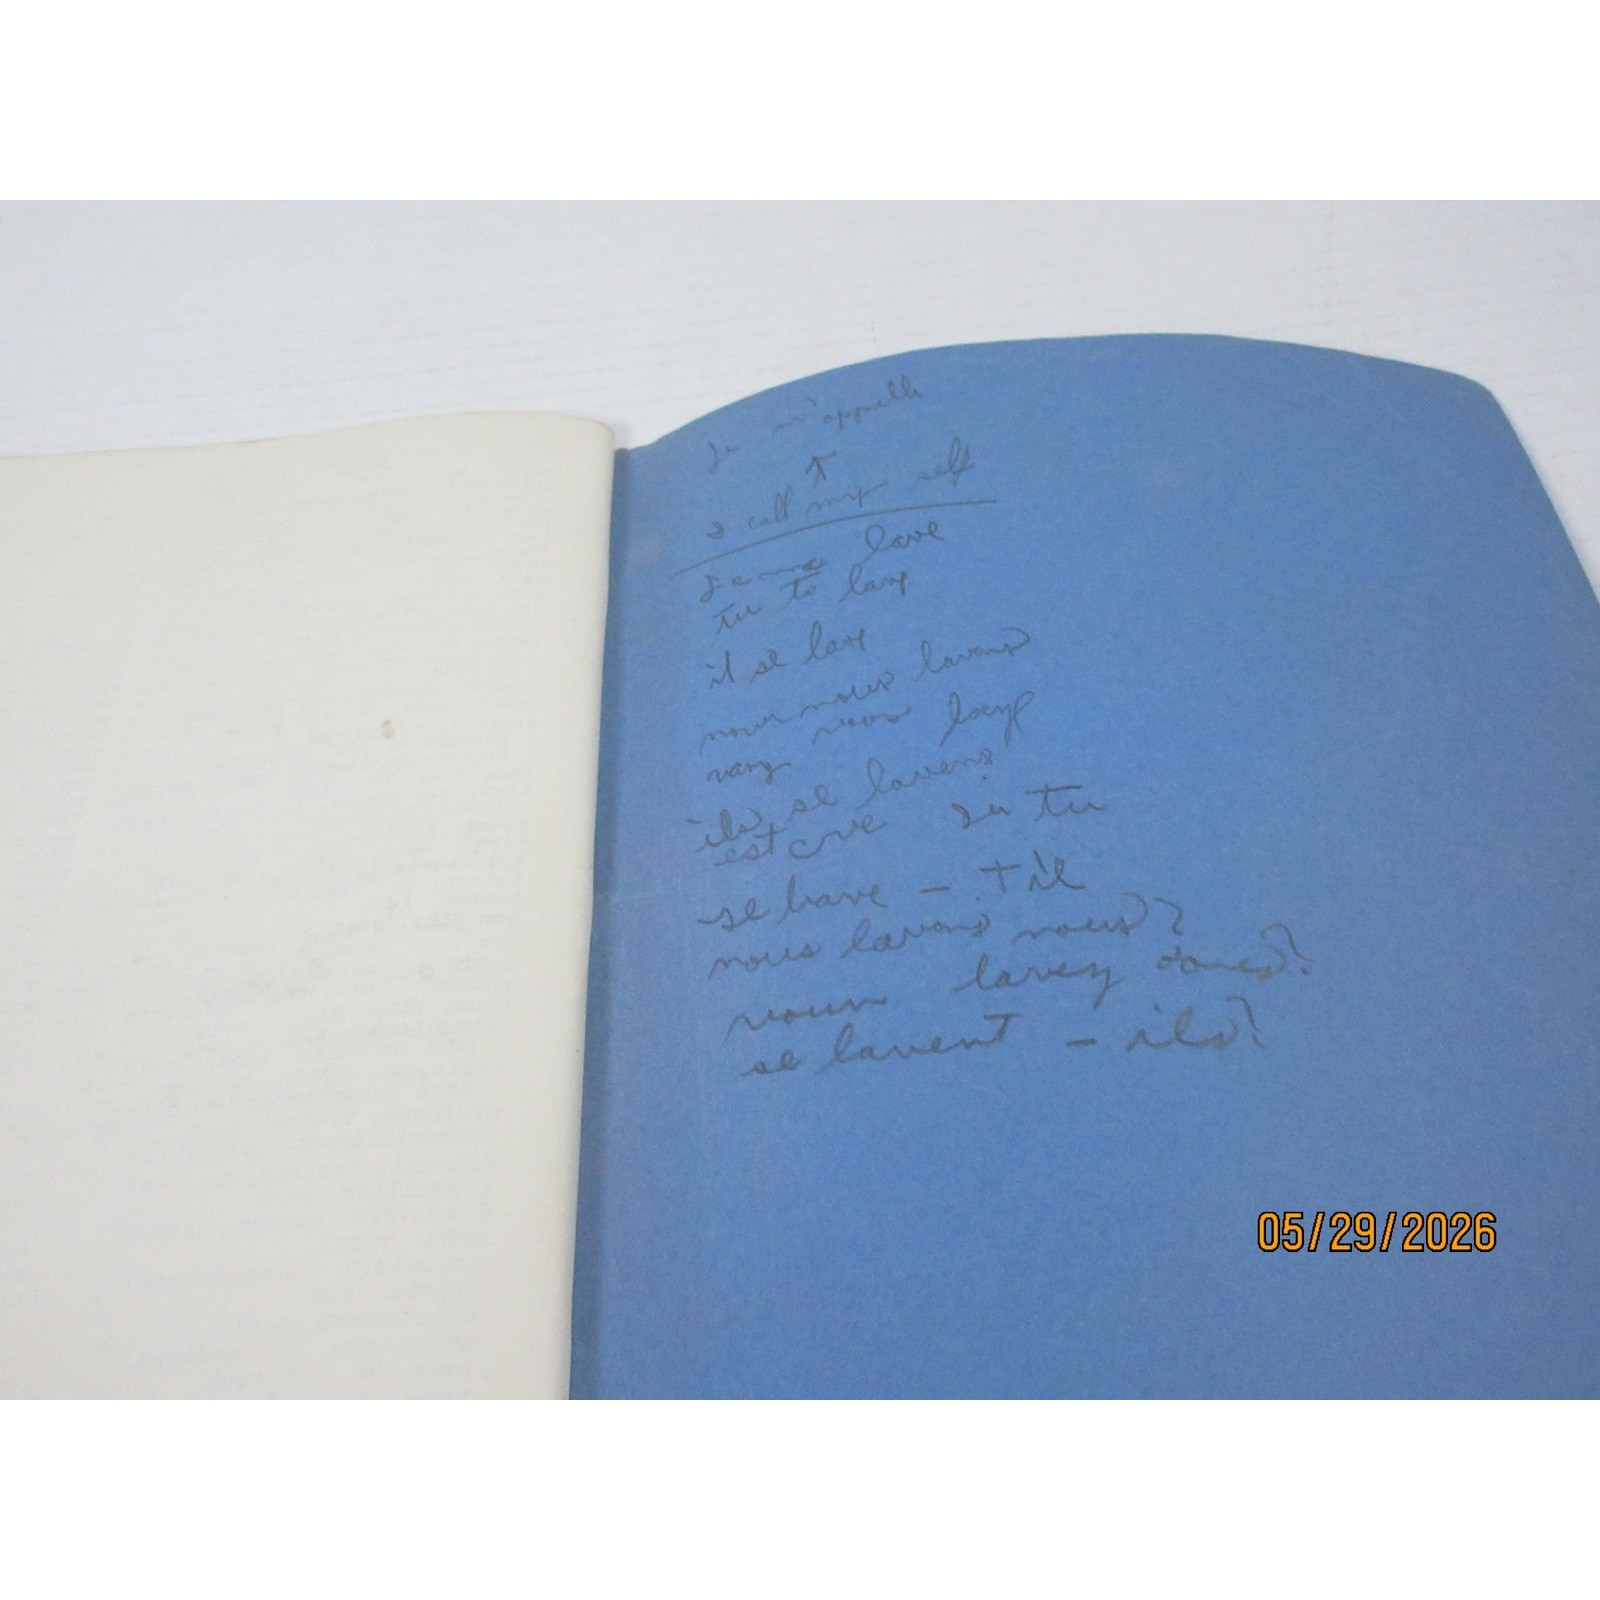 Je m'appelle
↑
I call my self
Je me lave
tu te lave
il se lave
nous nous lavons
vous
ils se lavent
est ce tu
se lave - t il
nous lavons nous?
lavez
se lavent - ils?
05/29/2026